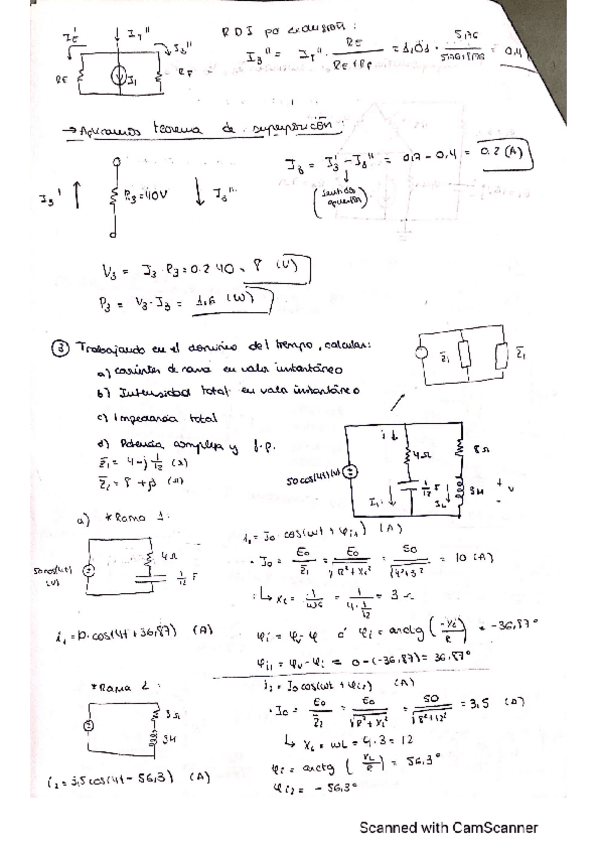 RDI po excursión:
IE' IT'' I3''
RE I1 RF
I3'' = IT'' · RE / RE+RF = 1,01 · 5,76 / = 0,4
→ Aplicamos teorema de superposición:
I3' R3=40V I3''
I3 = I3' - I3'' = 0.7 - 0.4 = 0.2 (A)
(sentidos opuestos)
V3 = I3 · R3 = 0.2 40 = 8 (V)
P3 = V3 · I3 = 1,6 (W)
③ Trabajando en el dominio del tiempo, calcular:
a) corrientes de rama en valor instantáneo
b) Intensidad total en valor instantáneo
c) Impedancia total
d) Potencia compleja y f.p.
Z̄1 = 4-j 1/12 (Ω)
Z̄2 = 8 + j3 (Ω)
Z̄1 Z̄1
50cos(4t)(V) i 4Ω 1/12 F I1 8Ω 3H IL + v -
a) *Rama 1:
50cos(4t) (V) 4Ω 1/12 F
i1 = Io cos(wt + φi1) (A)
· Io = Eo / Z̄1 = Eo / √R²+Xc² = 50 / √4²+3² = 10 (A)
↳ Xc = 1 / wC = 1 / 4·1/12 = 3
i1 = 10·cos(4t+36,87) (A)
φi = φv - φ φi = arctg (-Xc / R) = -36,87°
φi1 = φv-φi = 0-(-36,87) = 36.87°
*Rama 2:
8Ω 3H
i2 = Io cos(wt + φi2) (A)
· Io = Eo / Z̄2 = Eo / √R²+XL² = 50 / √8²+12² = 3,5 (A)
↳ XL = wL = 4·3 = 12
φi = arctg (XL / R) = 56.3°
i2 = 3,5cos(4t-56,3) (A)
φi2 = -56,3°
Scanned with CamScanner